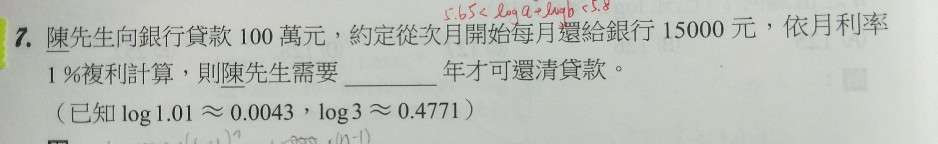 5.65 < log a + log b < 5.8
7. 陳先生向銀行貸款 100 萬元,約定從次月開始每月還給銀行 15000 元,依月利率
1 %複利計算,則陳先生需要 ________ 年才可還清貸款。
(已知 log 1.01 ≈ 0.0043,log 3 ≈ 0.4771)